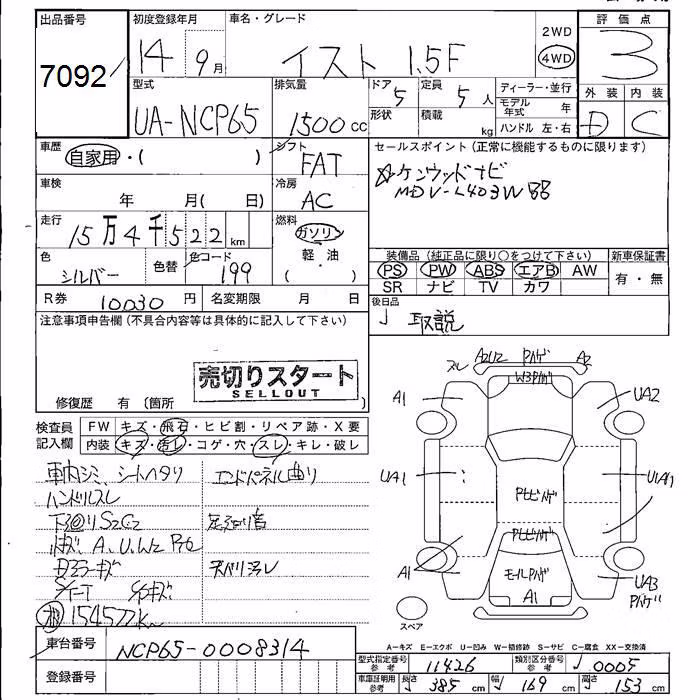 出品番号 初度登録年月 車名・グレード 2WD 評価点
7092 14 9月 イスト 1.5F 4WD 3
型式 排気量 ドア 5 定員 5人 ディーラー・並行 外装 内装
UA-NCP65 1500cc 形状 積載 kg モデル年式 年 D C
ハンドル 左・右
車歴 自家用・( ) シフト FAT セールスポイント(正常に機能するものに限ります)
車検 年 月( 日) 冷房 AC ☆ケンウッドナビ
MDV-L403W
走行 15万4千522km 燃料 ガソリン
軽・油
( )
色 シルバー 色替 色コード 199 装備品(純正品に限り○をつけて下さい) 新車保証書
PS PW ABS エアB AW 有・無
SR ナビ TV カワ
R券 10030円 名変期限 月 日 後日品
取説
注意事項申告欄(不具合内容等は具体的に記入して下さい)
売切りスタート
SELLOUT
修復歴 有(箇所
検査員記入欄 FW キズ・飛石・ヒビ割・リペア跡・X要
内装 キズ・汚レ・コゲ・穴・スレ・キレ・破レ
車内シミ、シートヘタリ エンドパネル曲リ
ハンドルスレ
下回りS2C2 足回り音
A、U、W2
天ベリ汚レ
154577km
スレ A2U2 Pハゲ A2
W3Pハゲ
A1 UA2
UA1
Pヒビハゲ
Pヒビハゲ
A1 モールPハゲ UA3
Pハゲ
A1
スペア
A-キズ E-エクボ U-凹み W-補修跡 S-サビ C-腐食 XX-交換済
車台番号 NCP65-0008314
型式指定番号 11426 類別区分番号 0005
登録番号
車庫証明用参考 長さ 385cm 幅 169cm 高さ 153cm